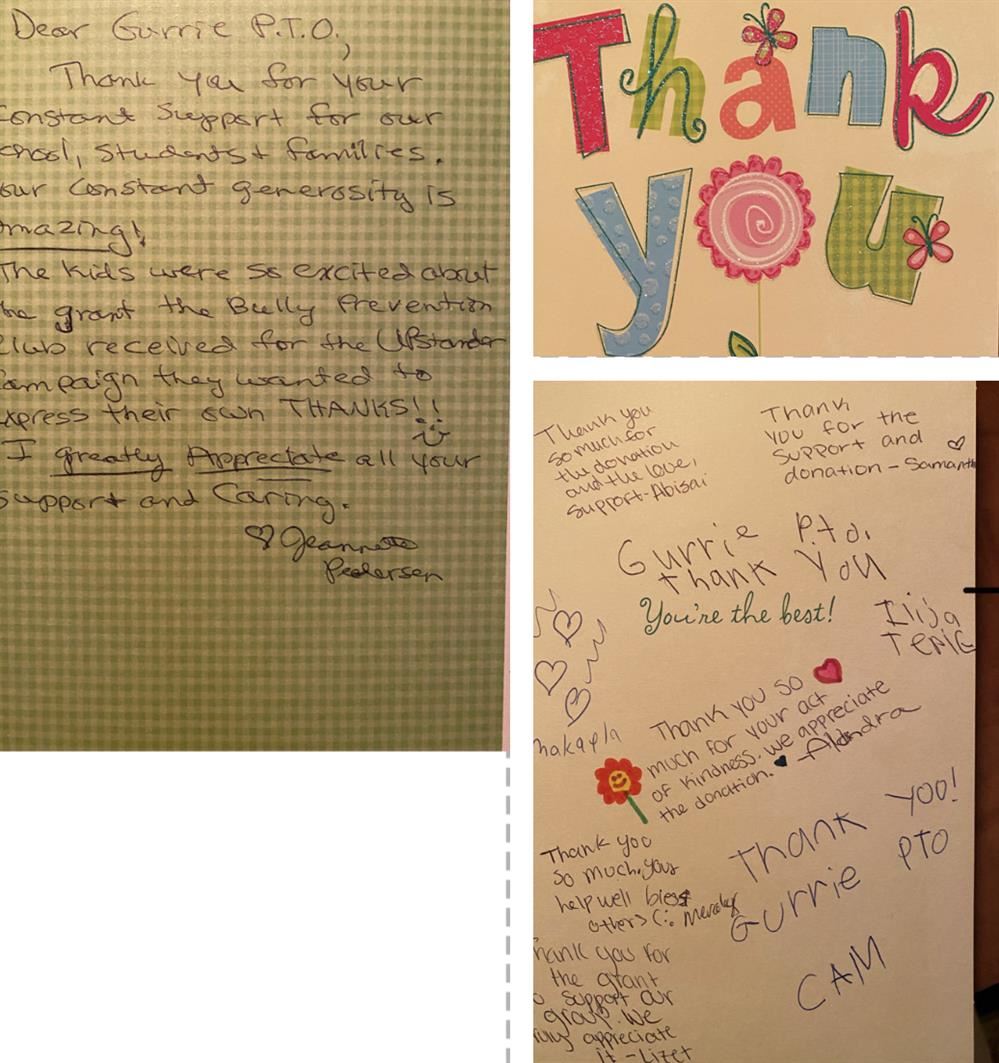 Dear Gurrie P.T.O.,
Thank you for your
constant support for our
chool, students + families.
our constant generosity is
mazing!
The kids were so excited about
he grant the Bully Prevention
Club received for the UPstander
ampaign they wanted to
xpress their own THANKS!!
I greatly Appreciate all your
support and Caring.
Jeannette
Pedersen
Thank
you
Thank you
so much for
the donation
and the love,
support-Abisai
Thank
you for the
support and
donation - Samanth
Gurrie P.t.o.
thank You
You're the best!
Ilija
TEPIC
makayla
Thank you so
much for your act
of kindness. we appreciate
the donation. - Alondra
Thank you
so much. your
help well bless
others (:
Thank YOO!
Gurrie PTO
CAM
hank you for
the grant
o support our
group. We
ruly appreciate
it - Lizet